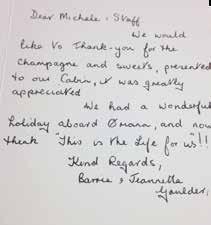 Dear Michele & Staff
We would
like to Thank-you for the
champagne and sweets, presented
to our Cabin, it was greatly
appreciated
We had a wonderful
holiday aboard and now
think "This is the Life for us"!!
Kind Regards,
Barrie & Jeannetta
Goulder.